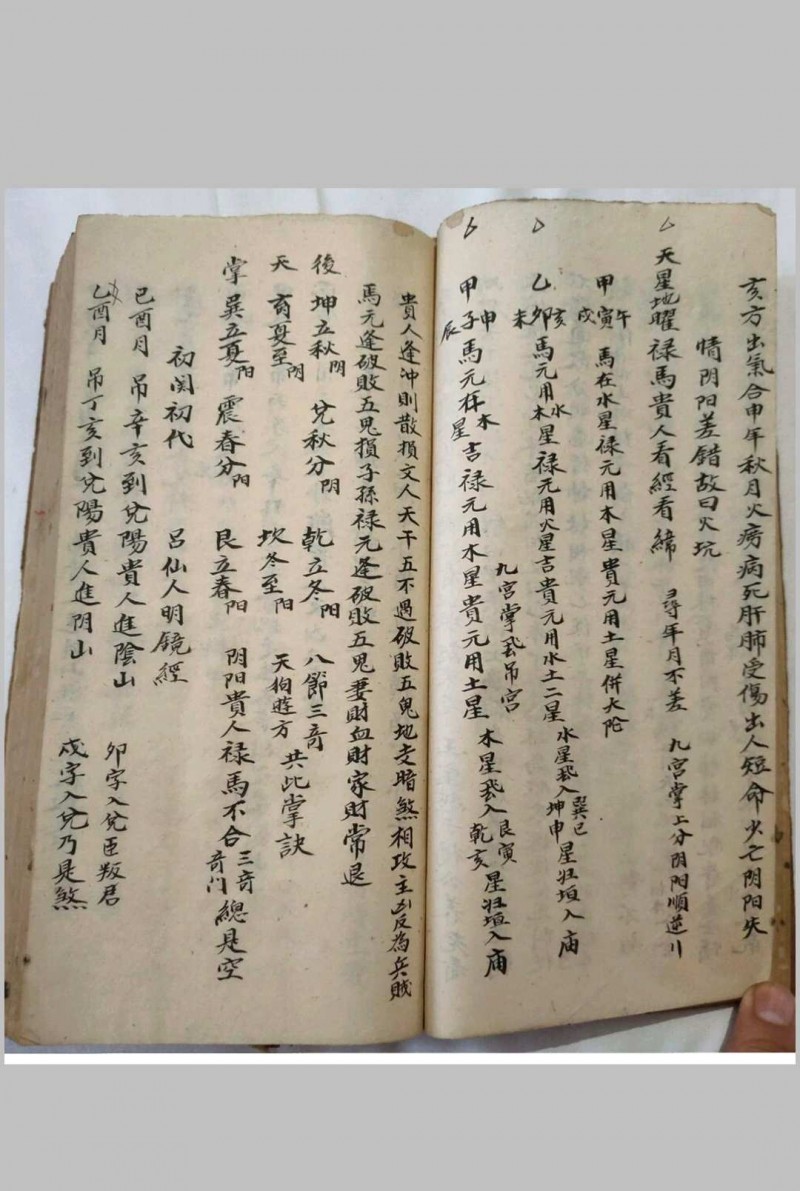 亥方出氣合申年秋月火痨病死肝肺受傷出人短命少亡阴阳失
情阴阳差錯故曰火坑
天星地曜禄馬貴人看經看緯 尋年月不差 九宫掌上分阴阳順逆川
甲寅午戌馬在水星禄元用木星貴元用土星併太陀
乙卯亥未馬元用水木星禄元用火星吉貴元用水土二星 水星飛入坤申巽巳星旺垣入庙
九宫掌飛吊宫
甲子申辰馬元木星吉禄元用木星貴元用土星 木星飛入艮寅乾亥星旺垣入庙
貴人逢冲則散損文人天干五不遇破敗五鬼地支暗煞相攻主反為兵賊
馬元逢破敗五鬼損子孫禄元逢破敗五鬼妻財血財家財常退
後 坤立秋阴 兌秋分阴 乾立冬阳 八節三奇
天 离夏至阴 坎冬至阳 天狗遊方 共此掌訣
掌 巽立夏阳 震春分阳 艮立春阳 阴阳貴人禄馬不合三奇奇门總是空
初関初代 呂仙人明镜經
己酉月 吊辛亥到兌陽貴人進陰山 卯字入兌臣叛君
乙酉月 吊丁亥到兌陽貴人進阴山 戌字入兌乃是煞